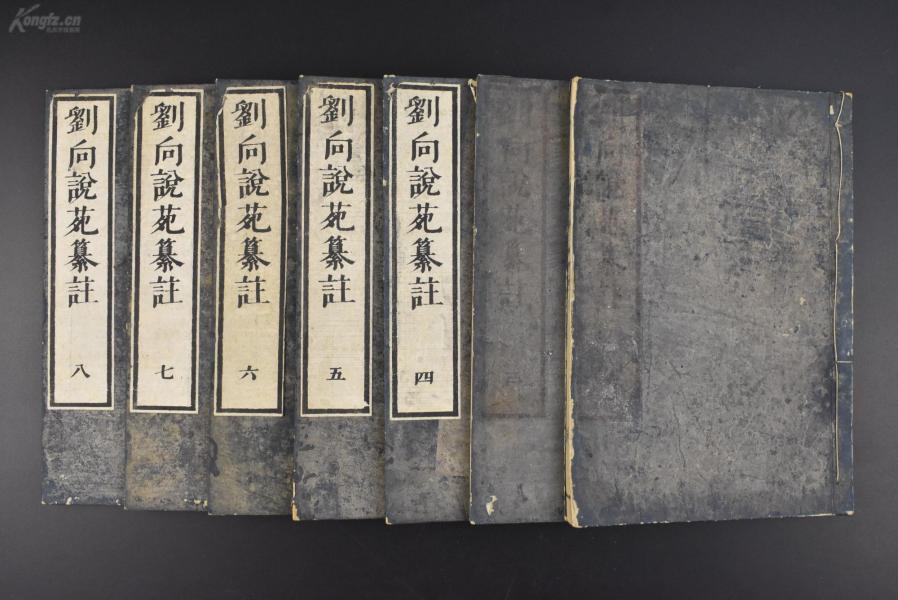 Kongfz.cn
劉向說苑纂註
四
劉向說苑纂註
五
劉向說苑纂註
六
劉向說苑纂註
七
劉向說苑纂註
八